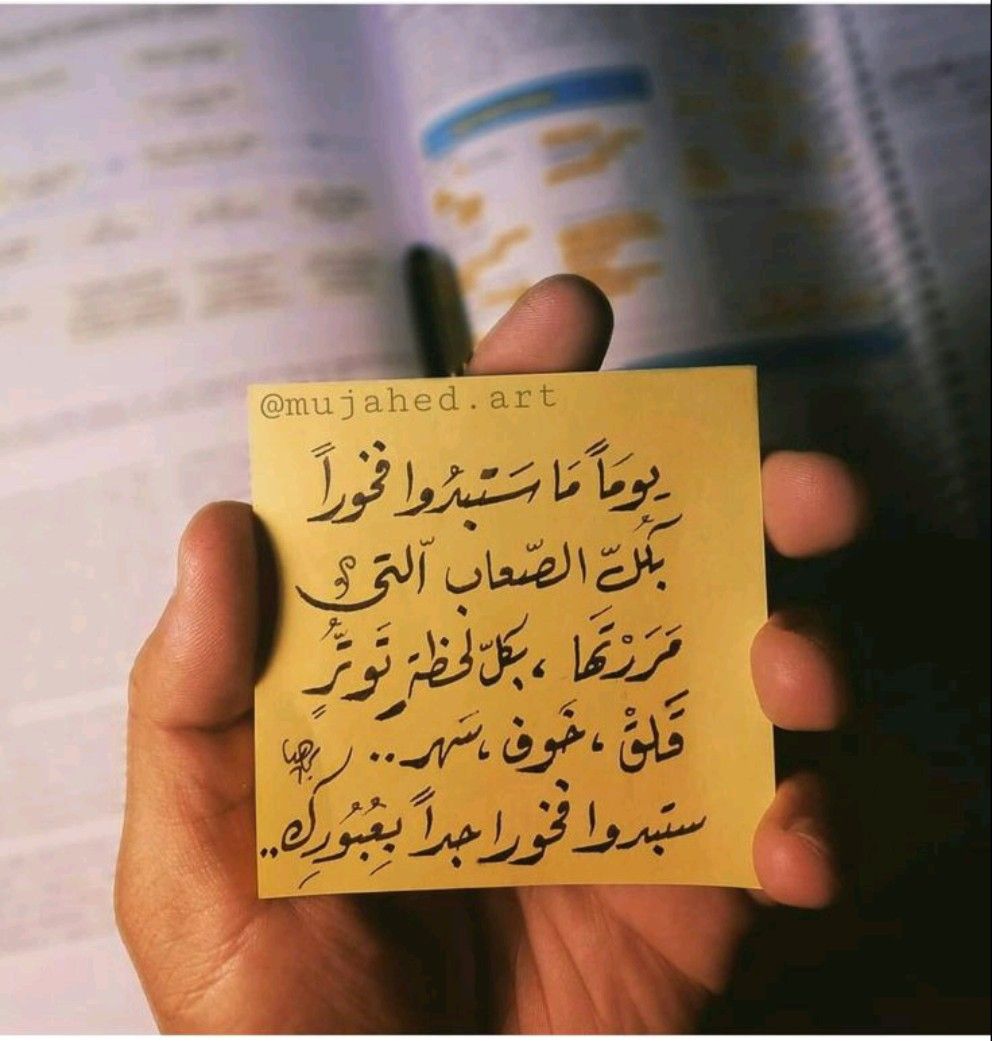 @mujahed.art
يومَاً مَا سَتبدُوا فخوراً
بكُلّ الصّعاب الّتي
مَرَرْتَها ، بكلّ لحظةٍ تَوتُّرٍ
قَلقْ ، خَوف ، سَهر ..
ستبدوا فخورا جداً بِعُبُورِك ..